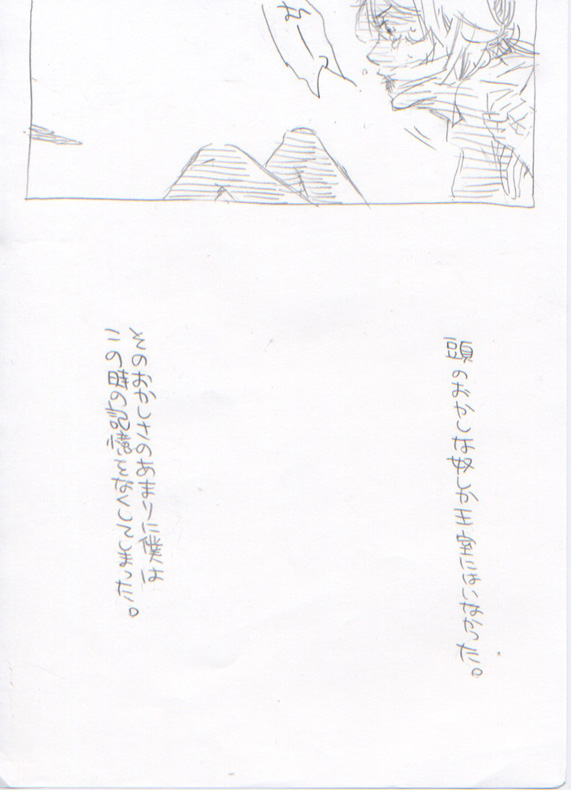 頭のおかしな奴しか王宮にはいなかった。
そのおかしさのあまりに僕は
この時の記憶をなくしてしまった。